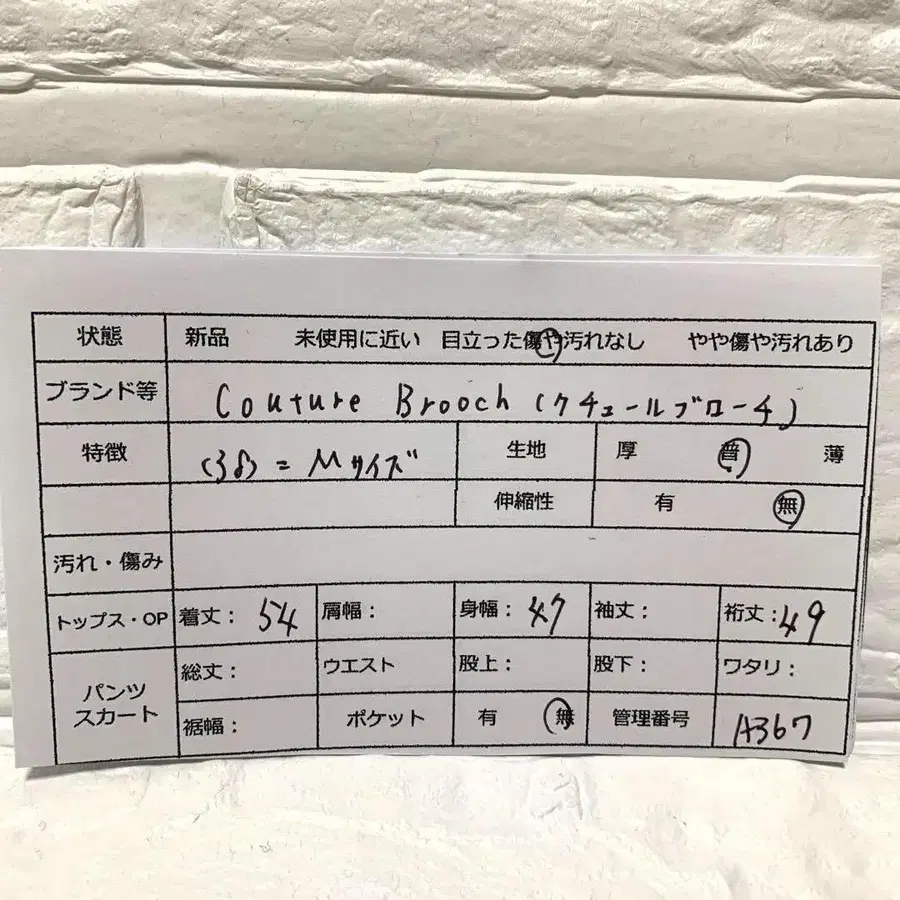 状態 新品 未使用に近い 目立った傷や汚れなし やや傷や汚れあり
ブランド等 Couture Brooch (クチュールブローチ)
特徴 (38) = Mサイズ 生地 厚 普 薄
伸縮性 有 無
汚れ・傷み
トップス・OP 着丈: 54 肩幅: 身幅: 47 袖丈: 裄丈: 49
パンツ スカート 総丈: ウエスト 股上: 股下: ワタリ:
裾幅: ポケット 有 無 管理番号 A367